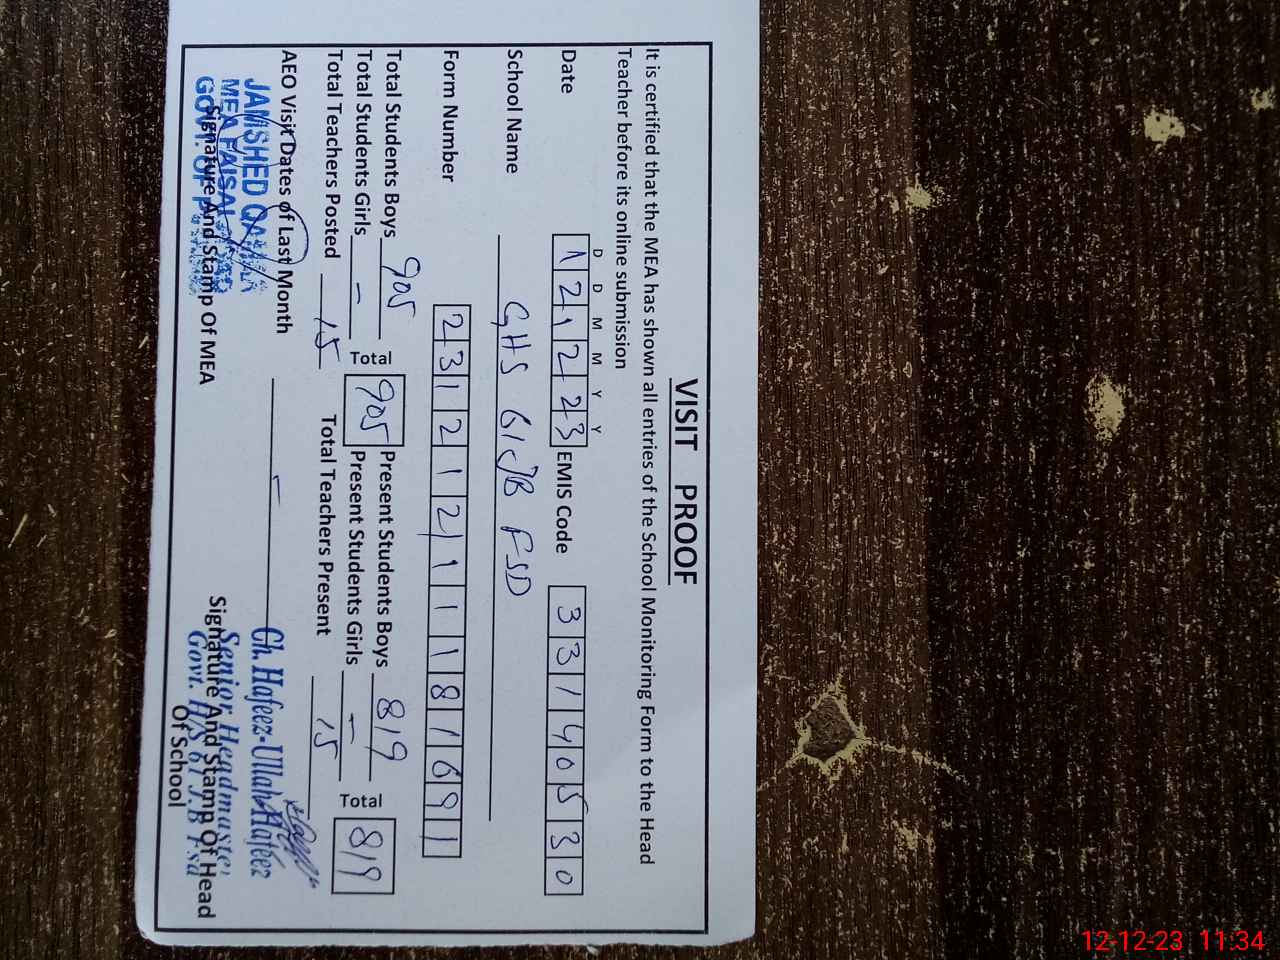 VISIT PROOF
It is certified that the MEA has shown all entries of the School Monitoring Form to the Head
Teacher before its online submission
D D M M Y Y
Date 1 2 1 2 2 3 EMIS Code 3 3 1 4 0 5 3 0
School Name GHS 61 JB FSD
Form Number 2 3 1 2 1 2 1 1 1 8 1 6 9 1
Total Students Boys 905 Total 905 Present Students Boys 819 Total 819
Total Students Girls – Present Students Girls –
Total Teachers Posted 15 Total Teachers Present 15
AEO Visit Dates of Last Month –
JAMSHED
MEA FAISALABAD
GOVT. OF
Signature And Stamp Of MEA
Ch. Hafeez-Ullah Hafeez
Senior Headmaster
Govt. H/S 61 J.B Fsd
Signature And Stamp Of Head
Of School
12-12-23 11:34